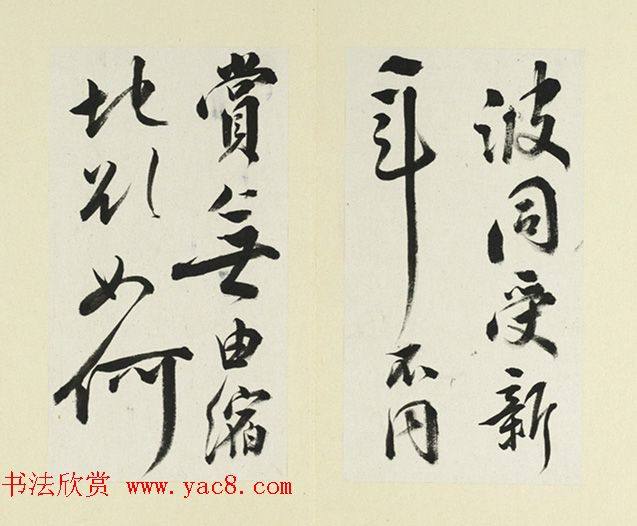 波同受新
年不同
賞無由縮
地歎如何
书法欣赏 www.yac8.com